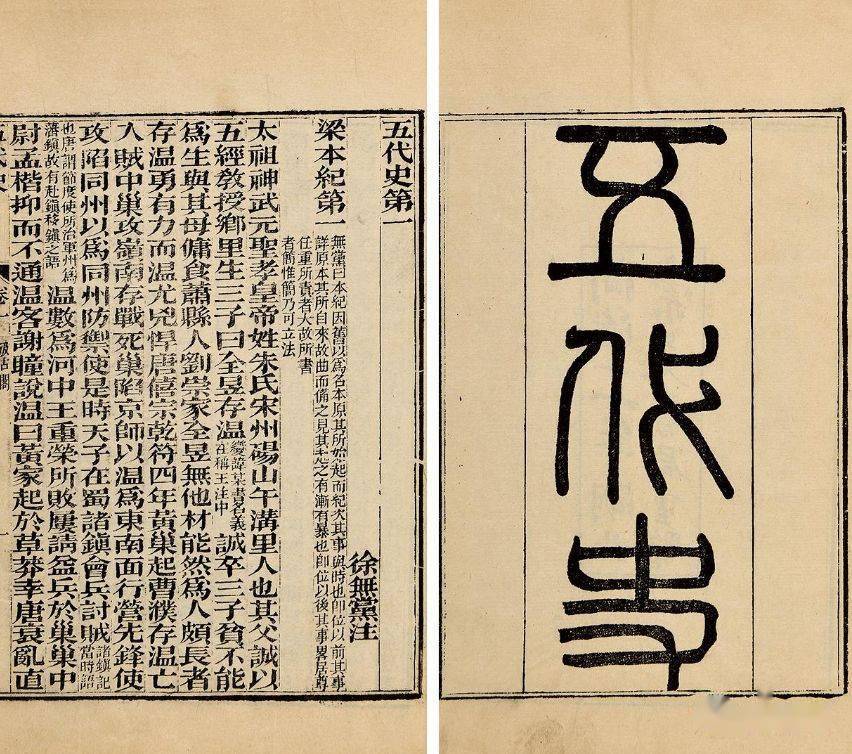 五代史
五代史第一
徐無黨注
梁本紀第一
無黨曰本紀因舊以爲名本原其所始起而紀次其事與時也即位以前其事
詳原本其所自來故曲而備之見其起之有漸有暴也即位以後其事畧居尊
任重所責者大故所書
者簡惟簡乃可立法
太祖神武元聖孝皇帝姓朱氏宋州碭山午溝里人也其父誠以
五經教授鄉里生三子曰全昱存溫變諱某書名義在稱王注中誠卒三子貧不能
爲生與其母傭食蕭縣人劉崇家全昱無他材能然爲人頗長者
存溫勇有力而溫尤兇悍唐僖宗乾符四年黃巢起曹濮存溫亡
入賊中巢攻嶺南存戰死巢陷京師以溫爲東南面行營先鋒使
攻陷同州以爲同州防禦使是時天子在蜀諸鎮會兵討賊諸鎮記當時語
也唐謂節度使所治軍州爲藩鎮故有赴鎮移鎮之語溫數爲河中王重榮所敗屢請益兵於巢巢中
尉孟楷抑而不通溫客謝瞳說溫曰黃家起於草莽幸唐衰亂直
五代史 卷一